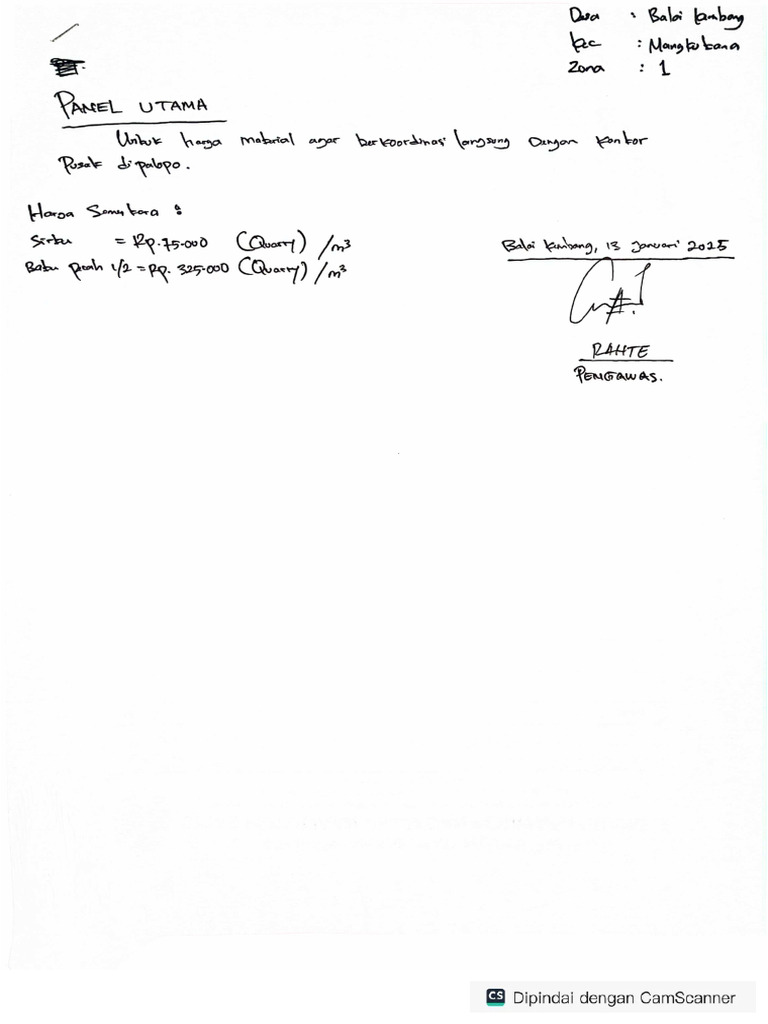 Desa : Balai kembang
kec : Mangkutana
Zona : 1
PANEL UTAMA
Untuk harga material agar berkoordinasi langsung Dengan kantor
Pusat di palopo.
Harga Sementara :
Sirtu = Rp. 75.000 (Quarry) /m³
Batu pecah 1/2 = Rp. 325.000 (Quarry) /m³
Balai kembang, 13 Januari 2025
RAHTE
PENGAWAS.
CS Dipindai dengan CamScanner